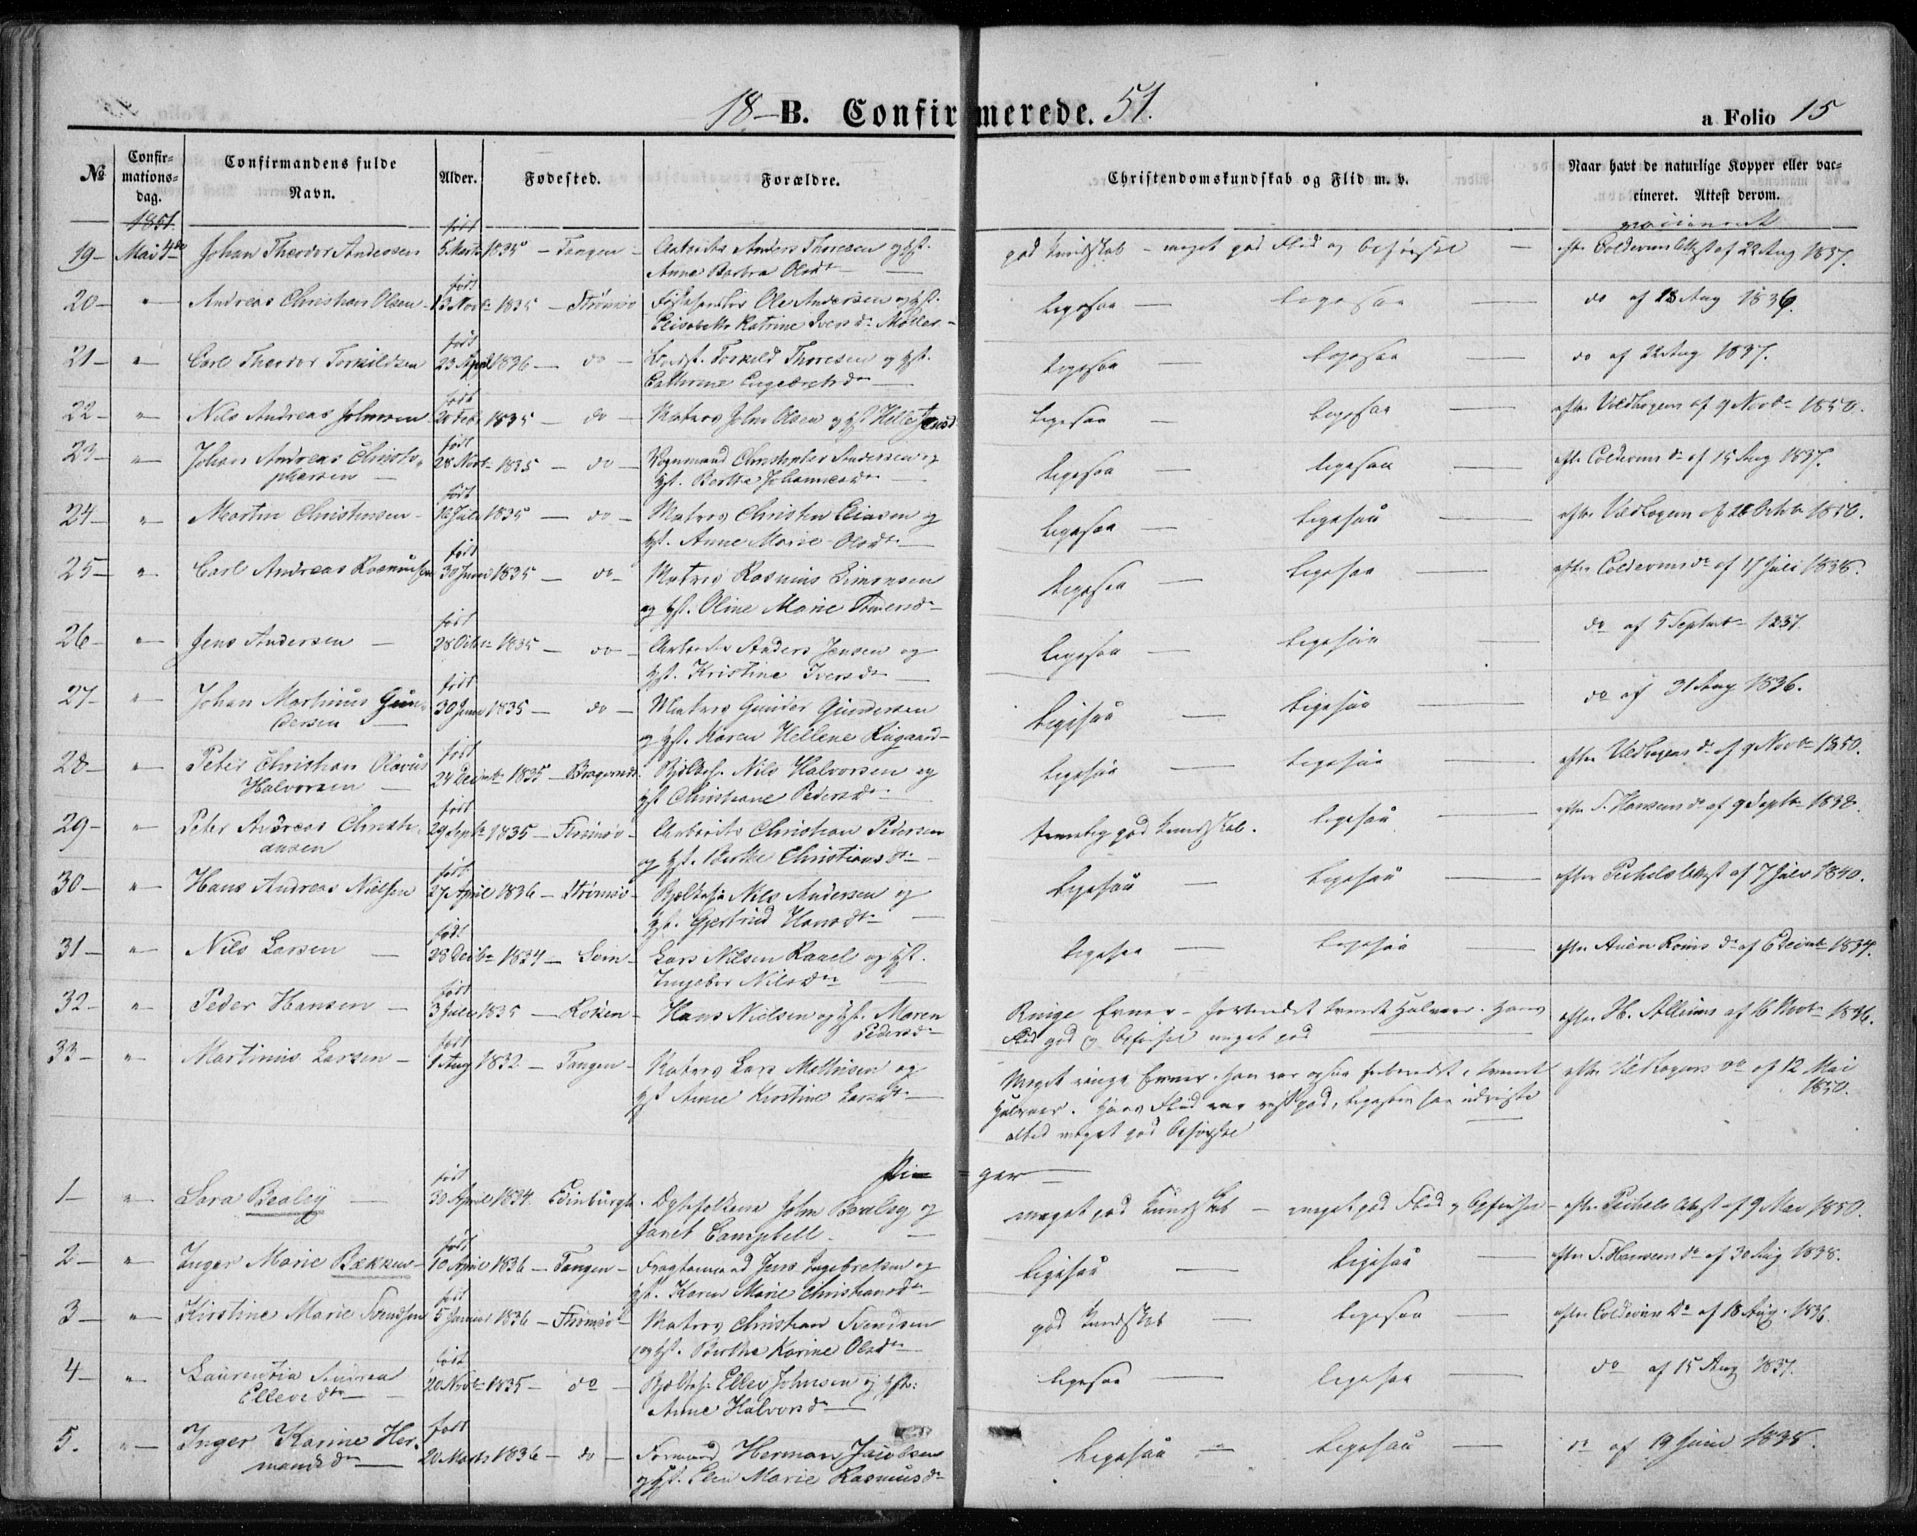 18 – B. Confirmerede. 51.
a Folio 15
№
Confir-
mations-
dag.
Confirmandens fulde
Navn.
Alder.
Fødested.
Forældre.
Christendomskundskab og Flid m. v.
Naar havt de naturlige Kopper eller vac-
cineret. Attest derom.
1851
født
vaccineret
19 – Mai 4de Johan Theodor Andersen 5 Marts 1835 – Tangen – Arbeids Anders Thoresen og Hst. Anne Barbra Olsdt – god Kundskab – meget god Flid og Opførsel – efter Coldevins Attest af 22 Aug 1837.
20 – " – Andreas Christian Olsen født 13 Novb 1835 – Strømsø Ole Andersen og Hst. Elisabeth Katrine Iversdr Møller – ligesaa – ligesaa – do af 18 Aug 1836.
21 – " – Carl Theodor Torkildsen født 23 April 1836 – do – Torkild Thoresen og Hst. Cathrine – ligesaa – ligesaa – do af 22 Aug 1837.
22 – " – Nils Andreas Johnsen født 20 Feb 1835 – do – Matros John Olsen og Hst Helle – ligesaa – ligesaa – efter Uldhogens af 9 Novb 1850.
23 – " – Johan Andreas Christo-
phersen – født 28 Novb 1835 – do – Vognmand Christopher Andersen og Hst. Berthe Johannesdr – ligesaa – ligesaa – efter Coldevins do af 15 Aug 1837.
24 – " – Martin Christensen – født Juli 1835 – do – Matros Christen Eliasen og Hst. Anne Marie Olsdr – ligesaa – ligesaa – efter Uldhogens af Octbr 1850.
25 – " – Carl Andreas Rasmussen født 30 Juni 1835 – do – Matros Rasmus Simensen og Hst. Oline Marie – ligesaa – ligesaa – efter Coldevins do af 17 Juli 1838.
26 – " – Jens Andersen – født 28 Octbr 1835 – do – Arbeider Anders Jensen og Hst. Kristine Iversdr – ligesaa – ligesaa – do af 5 Septbr 1837
27 – " – Johan Martinus Gun-
dersen – født 30 Juni 1835 – do – Matros Gunder Gundersen og Hst. Karen Hellene – ligesaa – ligesaa – do af 31 Aug 1836.
28 – " – Peter Christian Olavus
Halvorsen – født 24 Decemb 1835 – Bragernes. Nils Halvorsen og Hst Christiane Pedersdr – ligesaa – ligesaa – efter Uldhogens do af 9 Novb 1850.
29 – " – Peter Andreas Christi-
ansen født 29 Septb 1835 – Strømsø – Arbeids Christian Pedersen og Hst. Berthe Christiansdr – temmelig god Kundskab. ligesaa – efter T. Hansens do af 9 Septb 1838.
30 – " – Hans Andreas Nielsen født 27 April 1836 – Strømsø – Nils Andersen og Hst. Gjertrud Hansdr – ligesaa – ligesaa – efter Pihels Attest af 7 Julv 1840.
31 – " – Nils Larsen – født 28 Decbr 1834 – Sem – Lars Nilsen og Hst. Ingebor Nilsdr – ligesaa – ligesaa – efter do af 6 Decemb 1837.
32 – " – Peder Hansen – født 3 Juli 1835 – Røken – Hans Nielsen og Hst. Maren Pedersdr – Ringe Evner – forberedet trende Halvaar. Hans Flid god og Opførsel meget god – efter H. af 16 Novb 1836.
33 – " – Martinus Larsen – født 1 Aug 1832 – Tangen – Matros Lars Mathisen og Hst Anne Kirstine Larsdr – Meget ringe Evner. Han var ogsaa forberedet i trende Halvaar. Hans Flid var god, ligesom han udviste altid meget god Opførsel – efter Uldhogens do af 12 Mai 1850.
Pi – ger –
1 – " – Sara Bealey – født 30 April 1834. Edinburgh. Ægtefolkene John Bealey og Janet Campbell – meget god Kundskab – meget god Flid og Opførsel – efter Pihels Attest af 9 Mai 1850.
2 – " – Inger Marie Bakken – født 10 April 1836 – Tangen – Fragtemand Jens Ingebretsen og Hst. Karen Marie Christiansdr – ligesaa – ligesaa – efter T. Hansens do af 30 Aug 1838.
3 – " – Kirstine Marie Svendsen født 5 Januar 1836 – Strømsø – Matros Christian Svendsen og Hst. Berthe Karine Olsdr – god Kundskab – ligesaa – efter Coldevin do af 18 Aug. 1836.
4 – " – Laurentia Andrea
Ellevsdr – født 20 Novb 1835 – do – Ellev Johnsen og Hst. Anne Halvorsdr – ligesaa – ligesaa – do af 15 Aug 1837.
5. " – Inger Karine Her-
mandsdr – født 20 Marts 1836 – do – Formand Herman Jacobsen og Hst. Elen Marie Rasmusdr – ligesaa – ligesaa – do af 19 Juni 1838.